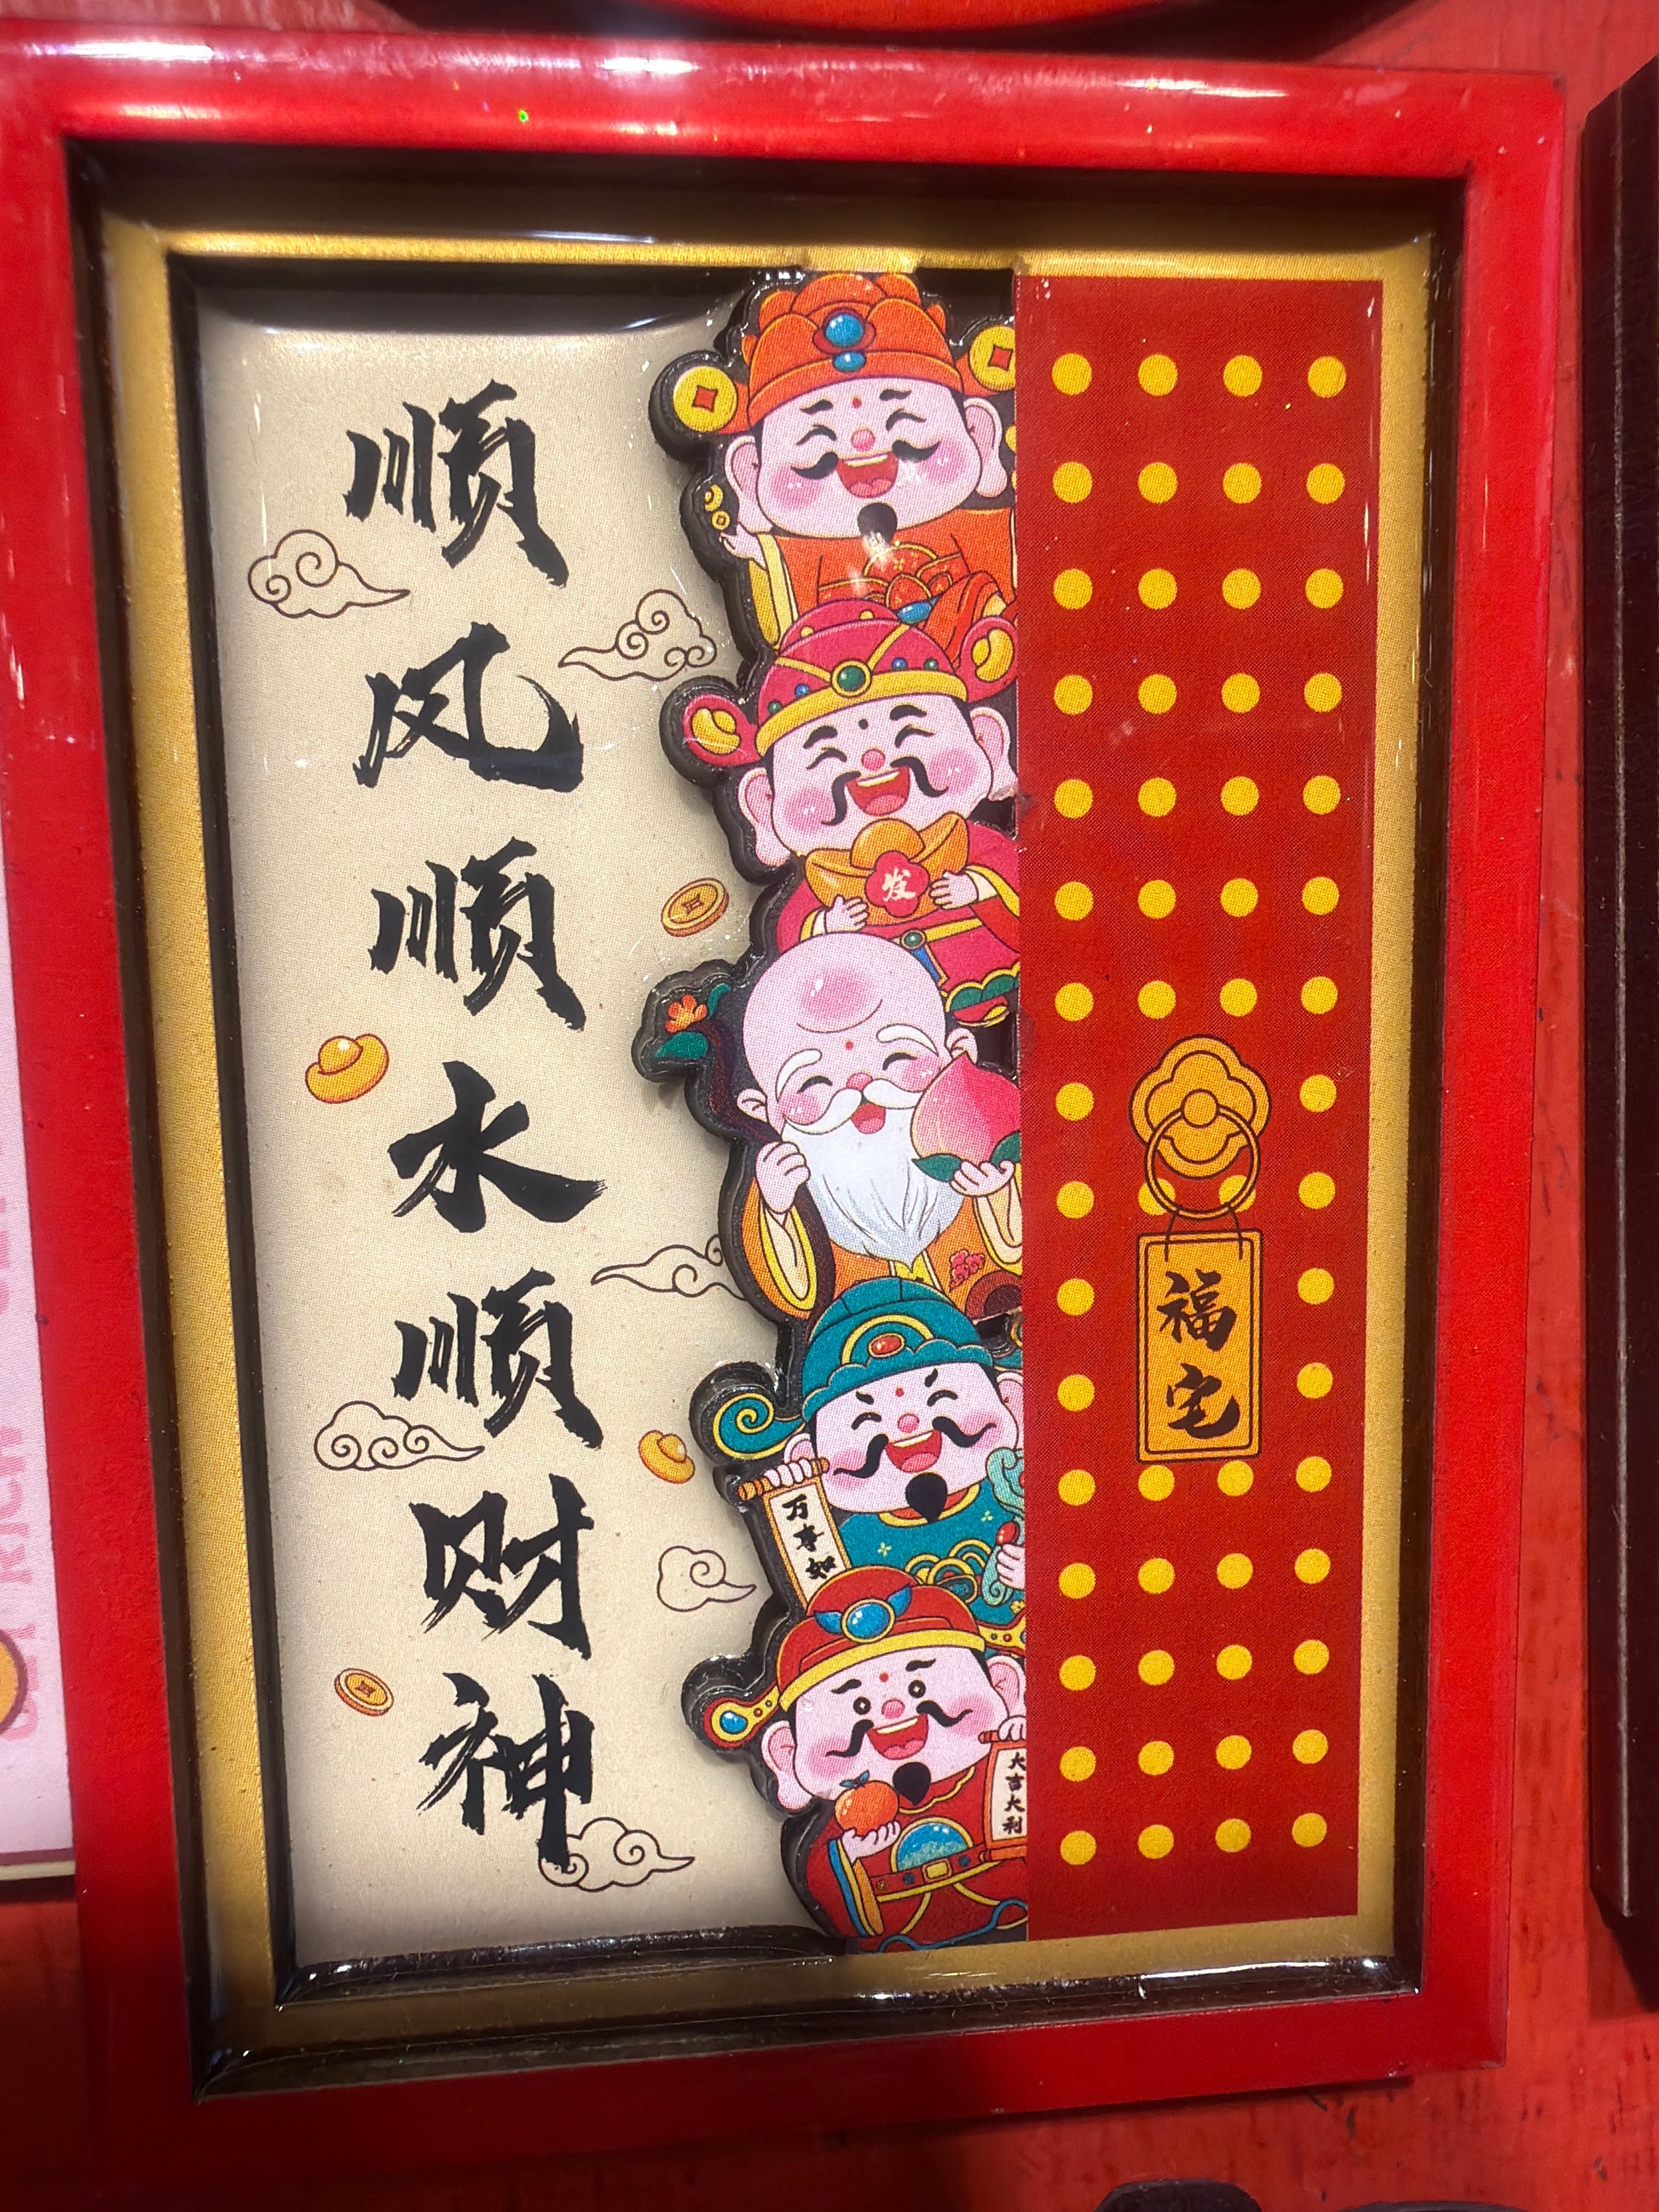 顺风顺水顺财神
发
万事如
大吉大利
福宅